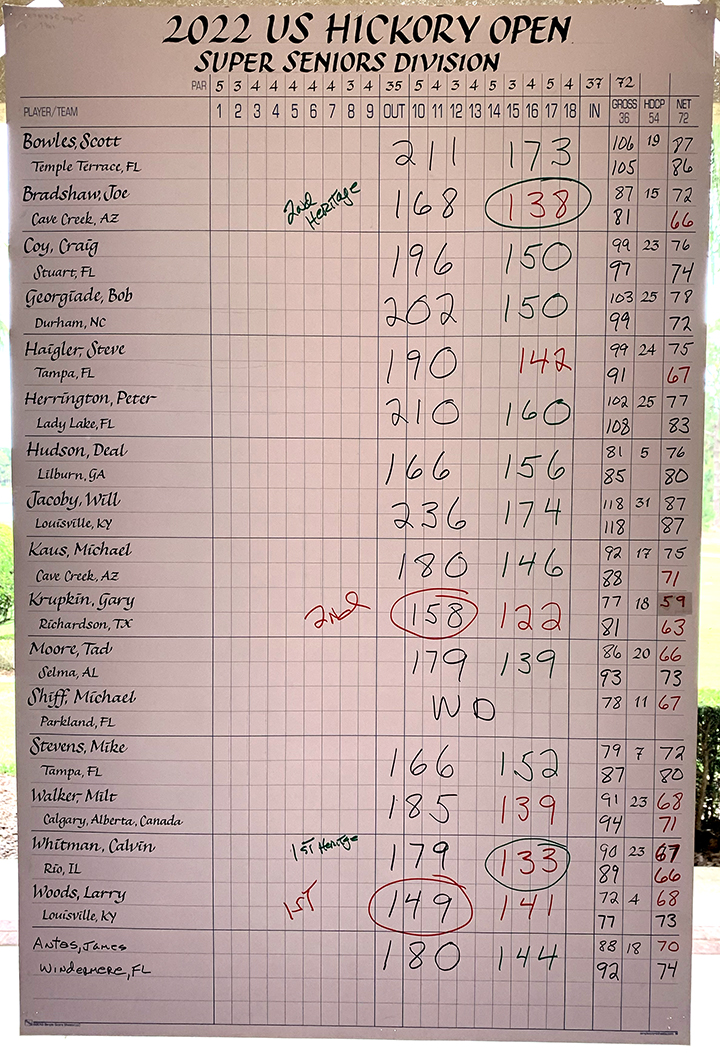 2022 US HICKORY OPEN
SUPER SENIORS DIVISION
PAR 5 3 4 4 4 4 4 3 4 35 4 4 3 4 5 3 4 5 4 37 72
PLAYER/TEAM 1 2 4 4 5 6 7 8 9 OUT 10 11 12 13 14 15 16 17 18 IN GROSS 36 HDCP 54 NET 72
Bowles, Scott 211 173 106 19 87
Temple Terrace, FL 105 86
Bradshaw, Joe 2nd Heritage 168 138 87 15 72
Cave Creek, AZ 81 66
Coy, Craig 196 150 99 23 76
Stuart, FL 97 74
Georgiade, Bob 202 150 103 25 78
Durham, NC 99 72
Haigler, Steve 190 142 99 24 75
Tampa, FL 91 67
Herrington, Peter 210 160 102 25 77
Lady Lake, FL 108 83
Hudson, Deal 166 156 81 5 76
Lilburn, GA 85 80
Jacoby, Will 236 174 118 31 87
Louisville, KY 118 87
Kaus, Michael 180 146 92 17 75
Cave Creek, AZ 88 71
Krupkin, Gary 2nd 158 122 77 18 59
Richardson, TX 81 63
Moore, Tad 179 139 86 20 66
Selma, AL 93 73
Shiff, Michael WD 78 11 67
Parkland, FL
Stevens, Mike 166 152 79 7 72
Tampa, FL 87 80
Walker, Milt 185 139 91 23 68
Calgary, Alberta, Canada 94 71
Whitman, Calvin 1ST Heritage 179 133 90 23 67
Rio, IL 89 66
Woods, Larry 1ST 149 141 72 4 68
Louisville, KY 77 73
Antos, James 180 144 88 18 70
Windermere, FL 92 74